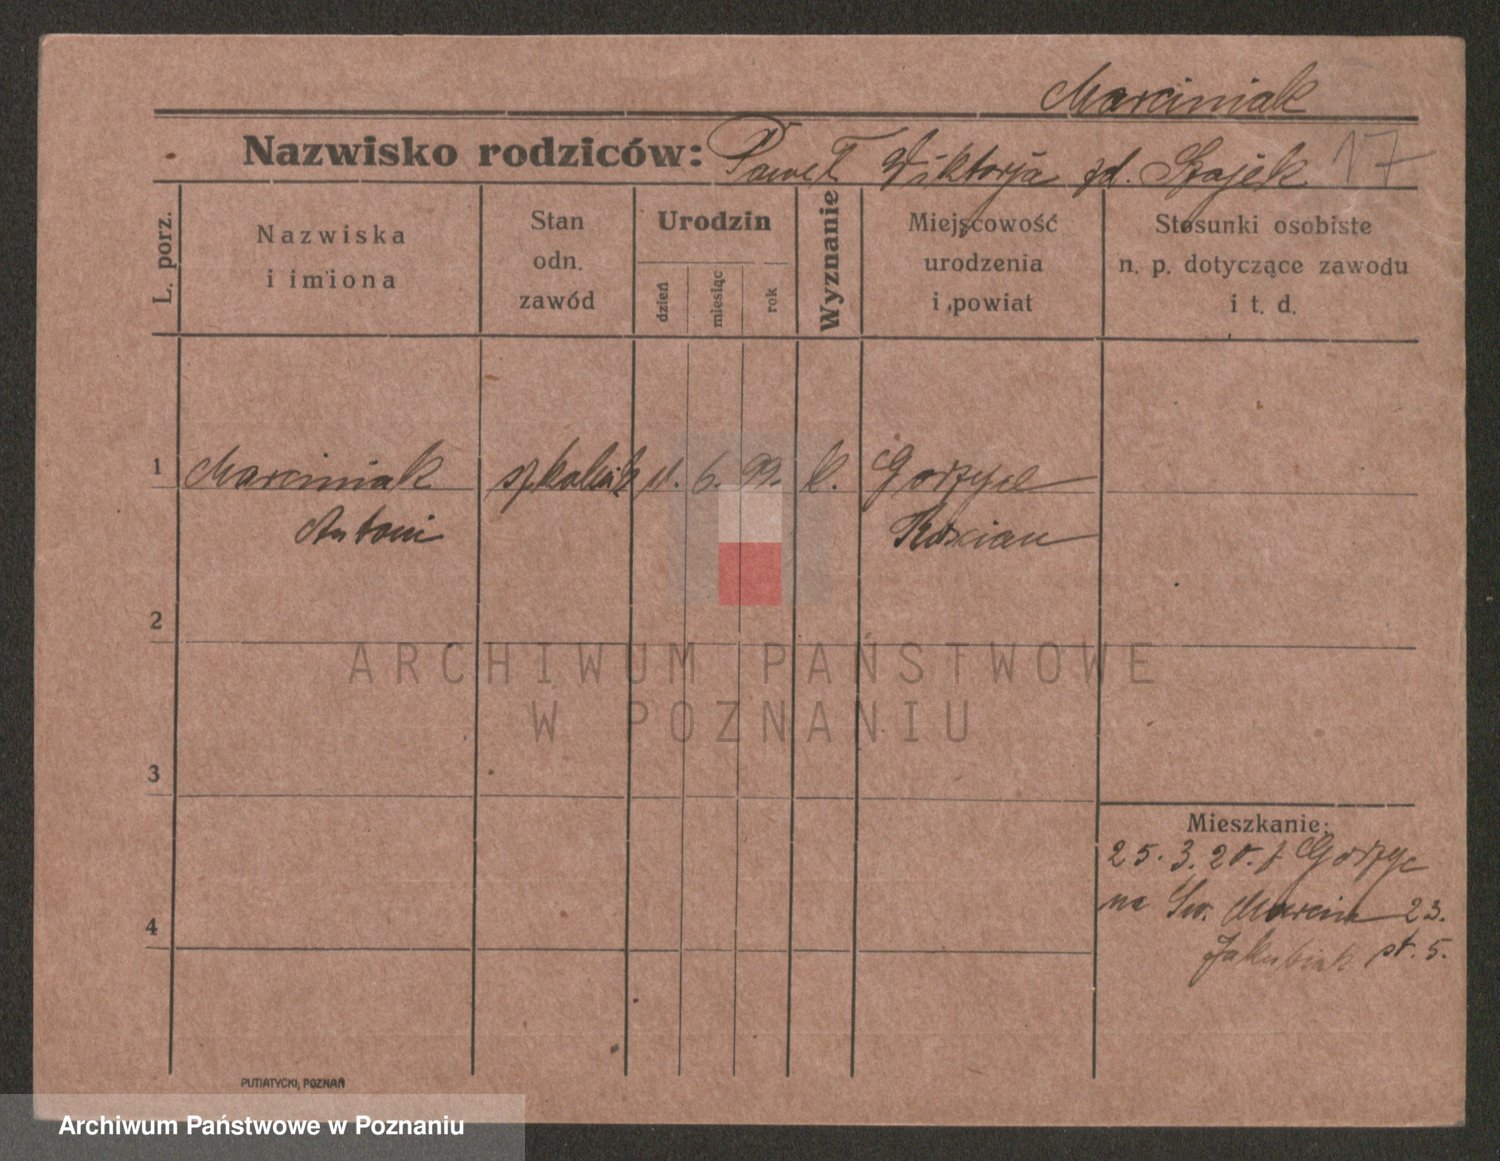 Marciniak
Nazwisko rodziców: Paweł Wiktorja zd. Szajek 17
L. porz.
Nazwiska
i imiona
Stan
odn.
zawód
Urodzin
dzień
miesiąc
rok
Wyznanie
Miejscowość
urodzenia
i powiat
Stosunki osobiste
n. p. dotyczące zawodu
i t. d.
1 Marciniak 6. 99. k. Gorzyce
Antoni Kościan
2
ARCHIWUM PAŃSTWOWE
W POZNANIU
3
Mieszkanie:
25. 3. 20. z Gorzyc
na Św. Marcin 23.
4
Jakubiak pt. 5.
PUTIATYCKI, POZNAŃ
Archiwum Państwowe w Poznaniu